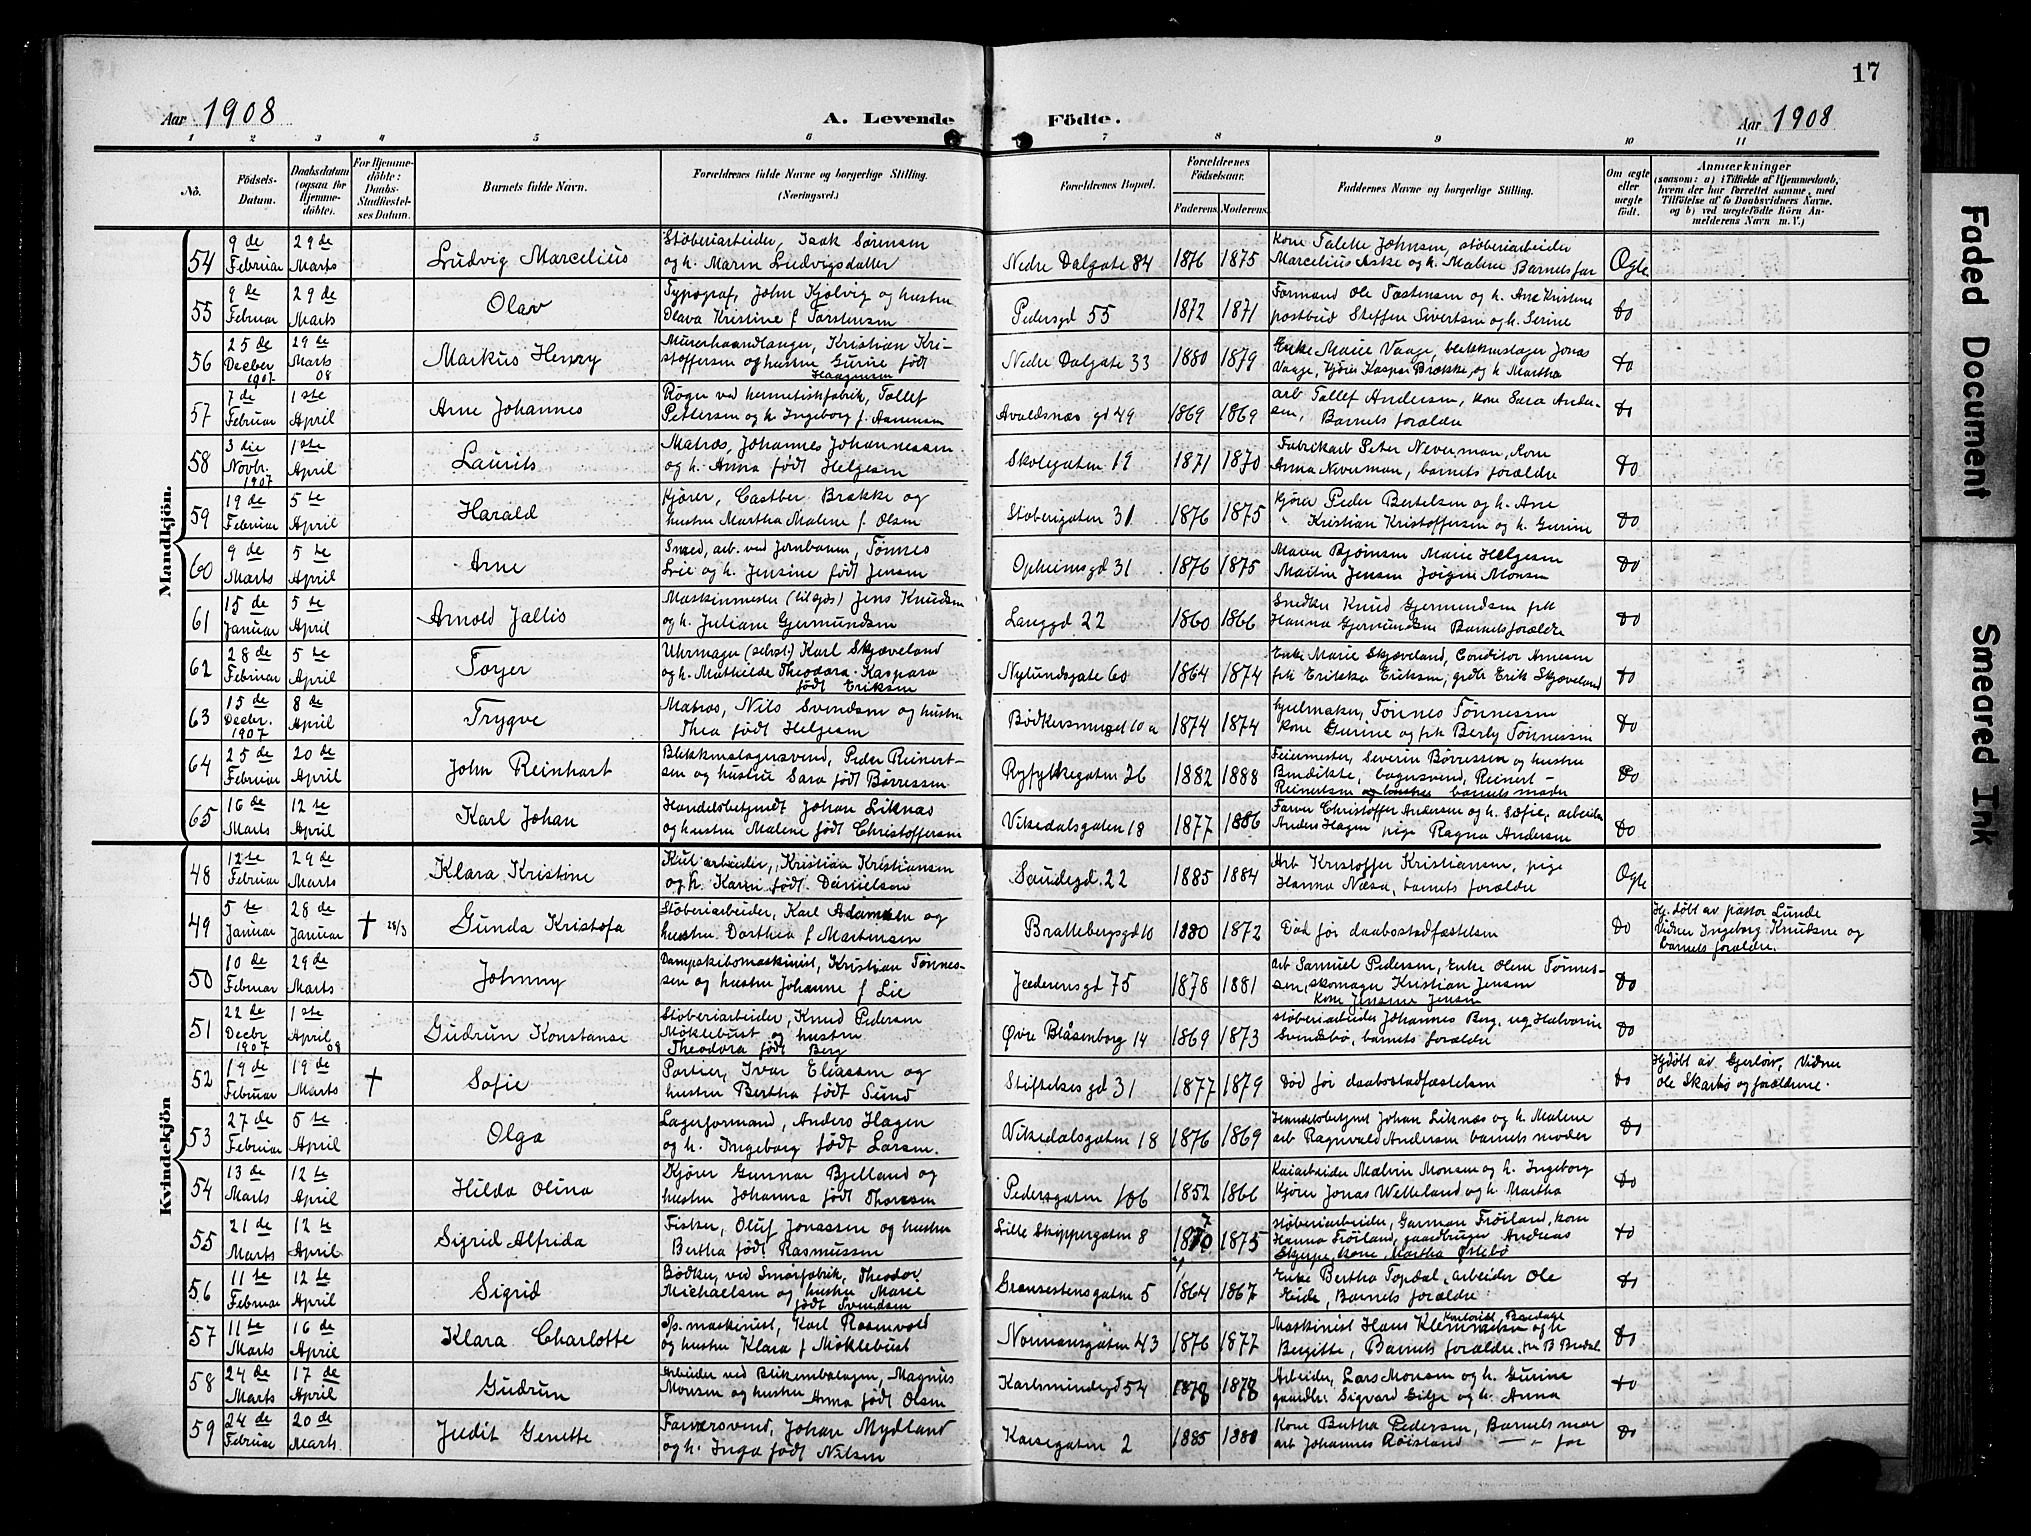 17
Aar 1908
A. Levende Födte.
Aar 1908
1 2 3 4 5 6 7 8 9 10 11
No.
Födsels-
Datum.
Daabsdatum
(ogsaa for
Hjemme-
döbte).
For Hjemme-
döbte:
Daabs-
Stadfæstel-
ses Datum.
Barnets fulde Navn.
Forældrenes fulde Navne og borgerlige Stilling.
(Næringsvei.)
Forældrenes Bopæl.
Forældrenes
Födselsaar.
Faderens. Moderens.
Faddernes Navne og borgerlige Stilling.
Om ægte
eller
uægte
født.
Anmærkninger
(saasom: a) i Tilfælde af Hjemmedaab,
hvem der har forrettet samme, med
Tilföielse af to Daabsvidners Navne,
og b) ved uægtefödte Börn An-
melderens Navn m. V.)
Mandkjön.
54 9 de Februar 29 de Marts Ludvig Marcelius
Støberiarbeider, Isak Sørensen
og h. Maren Ludvigsdatter
Nedre Dalgate 84 1876 1875
Kone Talette Johnsen, støberiarbeider
Marcelius Aske og h. Malene Barnets far
Ægte
55 9 de Februar 29 de Marts Olav
Typograf, John Kjølvig og hustru
Olava Kristine f Torstensen
Pedersgd 55 1872 1871
Formand Ole Tostensen og h. Ane Kristine
postbud Steffen Sivertsen og h. Serine
do
56 25 de Decber 1907 29 de Marts 08 Markus Henry
Murerhaandlanger, Kristian Kri-
stoffersen og hustru Gurine født
Haagensen
Nedre Dalgate 33 1880 1879
Enke Marie Vaage, blekkenslager Jonas
Vaage, Kasper Brække, og h. Martha
do
57 7 de Februar 1ste April Arne Johannes
Røger ved hermetikfabrik, Tollef
Pettersen og h Ingeborg f. Aanensen
Avaldsnæs gd 49 1869 1869
arb Tollef Andersen, kone Sara Ander-
sen, Barnets forældre
do
58 3 die Novbr. 1907 1ste April Laurits
Matros, Johannes Johannessen
og h. Anna født Helgesen
Skolegaten 19 1871 1870
Fabrikarb Peter Neverman, Kone
Anna Neverman, barnets forældre
do
59 19 de Februar 5 te April Harald
Kjører, Castber Brække og
hustru Martha Malene f. Olsen
Støberigaten 31 1876 1875
Kjører Peder Bertelsen og h. Ane
" Kristian Kristoffersen og h. Gurine
do
60 9 de Marts 5 te April Arne
Smed, arb. ved Jernbanen, Tønnes
Lie og h. Jensine født Jensen
Opheimsgd 31 1876 1875
Maren Bjørnsen Marie Helgesen
Martin Jensen Jørgine Monsen
do
61 15 de Januar 5 te April Arnold Jallis
Maskinmester (tilsjøs) Jens Knudsen
og h. Juliane Gjermundsen
Langgd 22 1860 1866
Snedker Knud Gjermundsen frk
Hanna Gjermundsen Barnets forældre
do
62 28 de Februar 5 te April Torger
Uhrmager (selvst.) Karl Skjæveland
og h. Mathilde Theodora Kaspara
født Eriksen
Nylundsgate 60 1864 1874
Enke Marie Skjæveland, Conditor Arnesen
frk Erikka Eriksen, Erik Skjæveland
do
63 15 de Decbr. 1907 8 de April Trygve
Matros, Nils Svendsen og hustru
Thea født Helgesen
Bødkersmuget 10 a 1874 1874
hjulmaker, Tønnes Tønnessen
kone Gurine og frk Berly Tønnessen
do
64 25 de Februar 20 de April John Reinhart
Blekkenslagersvend, Peder Reinert-
sen og hustru Sara født Børressen
Ryfylkegaten 26 1882 1888
Feiermester, Severin Børressen og hustru
Bendikte, bagersvend, Reinert
Reinertsen og barnets moder
do
65 16 de Marts 12 te April Karl Johan
Handelsbetjendt Johan Liknæs
og hustru Malene født Christoffersen
Vikedalsgaten 18 1877 1886
Farver Christoffer Andersen og h. Sofie, arbeider
Anders Hagen pige Ragna Andersen
do
Kvindekjön
48 12te Februar 29 de Marts Klara Kristine
Kularbeider, Kristian Kristiansen
og h. Karen født Danielsen
Saudegd. 22 1885 1884
Arb Kristoffer Kristiansen, pige
Hanna Næsa, barnets forældre
Ægte
49 5 te Januar 28 de Januar † 28/3 Gunda Kristofa
Støberiarbeider, Karl Adamsen og
hustru Dorthea f Martinsen
Brattebergsgd 10 1880 1872
Død før daabsstadfæstelsen
do
Hj. døbt av pastor Lunde
Vidner Ingeborg Knudsen og
barnets forældre.
50 10 de Februar 29 de Marts Johnny
Dampskibsmaskinist, Kristian Tønnes-
sen og hustru Johanne f Lie
Jæderensgd 75 1878 1881
arb Samuel Pedersen, Enke Olene Tønnes-
sen, skomager Kristian Jensen
Kone Jensine Jensen
do
51 22 de Decbr 1907 1ste April 08 Gudrun Konstanse
Støberiarbeider, Knud Pedersen
Møklebust og hustru
Theodora født Berg
Øvre Blåsenborg 14 1869 1873
støberiarbeider Johannes Berg, ug Halvorine
Svendsbø, barnets forældre
do
52 19 de Februar 19 de Marts † Sofie
Portier, Ivar Eliassen og
hustru Bertha født Sund
Stiftelsesgd 31 1877 1879
Død før daabsstadfæstelsen
do
Hjdøbt av Gjerløw, Vidner
Ole Skarbø og forældrene.
53 27 de Februar 5 te April Olga
Lagerformand, Anders Hagen
og h. Ingeborg født Larsen.
Vikedalsgaten 18 1876 1869
Handelsbetjent Johan Liknæs og h. Malene
arb Ragnvald Andersen barnets moder
do
54 13 de Marts 12 te April Hilda Olina
Kjører Gunnar Bjelland og
hustru Johanna født Thorsen
Pedersgaten 106 1852 1866
Kaiarbeider Malvin Monsen og h. Ingeborg
Kjører Jonas Welleland og h. Martha
do
55 21 de Marts 12 te April Sigrid Alfrida
Fisker, Oluf Jonassen og hustru
Bertha født Rasmussen
Lille Skippergaten 8 1870 1875
støberiarbeider, Garman Frøiland, kone
Hanna Frøiland, gaardbruger Andreas
kone, Martha Østebø
do
56 11 te Februar 12 te April Sigrid
Bødker, ved Smørfabrik, Theodor
Michaelsen og hustru Marie
født Svendsen
Grønsestensgaten 5 1864 1867
Enke Bertha Topdal, arbeider Ole
Eide, Barnets forældre
do
57 11te Marts 16 de April Klara Charlotte
Sp. maskinist, Karl Rosenvold
og hustru Klara f Møklebust
Normansgaten 43 1876 1877
Maskinist Hans Klemmetsen og h
Bergitte, Barnets forældre.
do
58 24 de Marts 17 de April Gudrun
Arbeider ved Blikemballagen, Magnus
Monsen og hustru Anna født Olsen
Karlsmindegd 54 1878 1878
Arbeider, Lars Monsen og h. Gurine
gaardbr. Sigvard Gilje og h. Anna
do
59 24 de Februar 20 de Marts Judit Genette
Farversvend, Johan Mydland
og h. Inga født Nilsen
Kaisegaten 2 1885 1880
Kone Bertha Pedersen, Barnets mor
arb Johannes Røisland — " — far
do
Faded Document
Smeared Ink